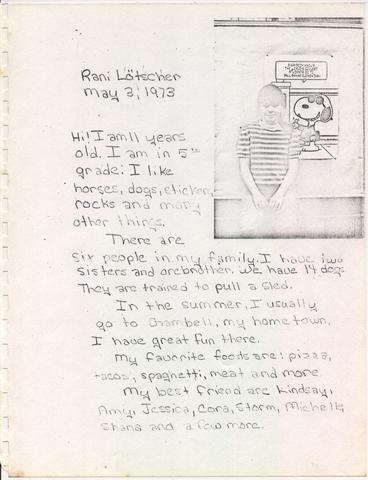 Rani Lötscher
May 3, 1973
Hi! I am 11 years
old. I am in 5th
grade. I like
horses, dogs, sticker
rocks and many
other things.
There are
six people in my family. I have two
sisters and one brother. We have 14 dogs
They are trained to pull a sled.
In the summer, I usually
go to Gambell, my home town.
I have great fun there.
My favorite foods are: pizza,
tacos, spaghetti, meat and more.
My best friend are Kindsay,
Amy, Jessica, Cora, Storm, Michelle,
Shana and a few more.